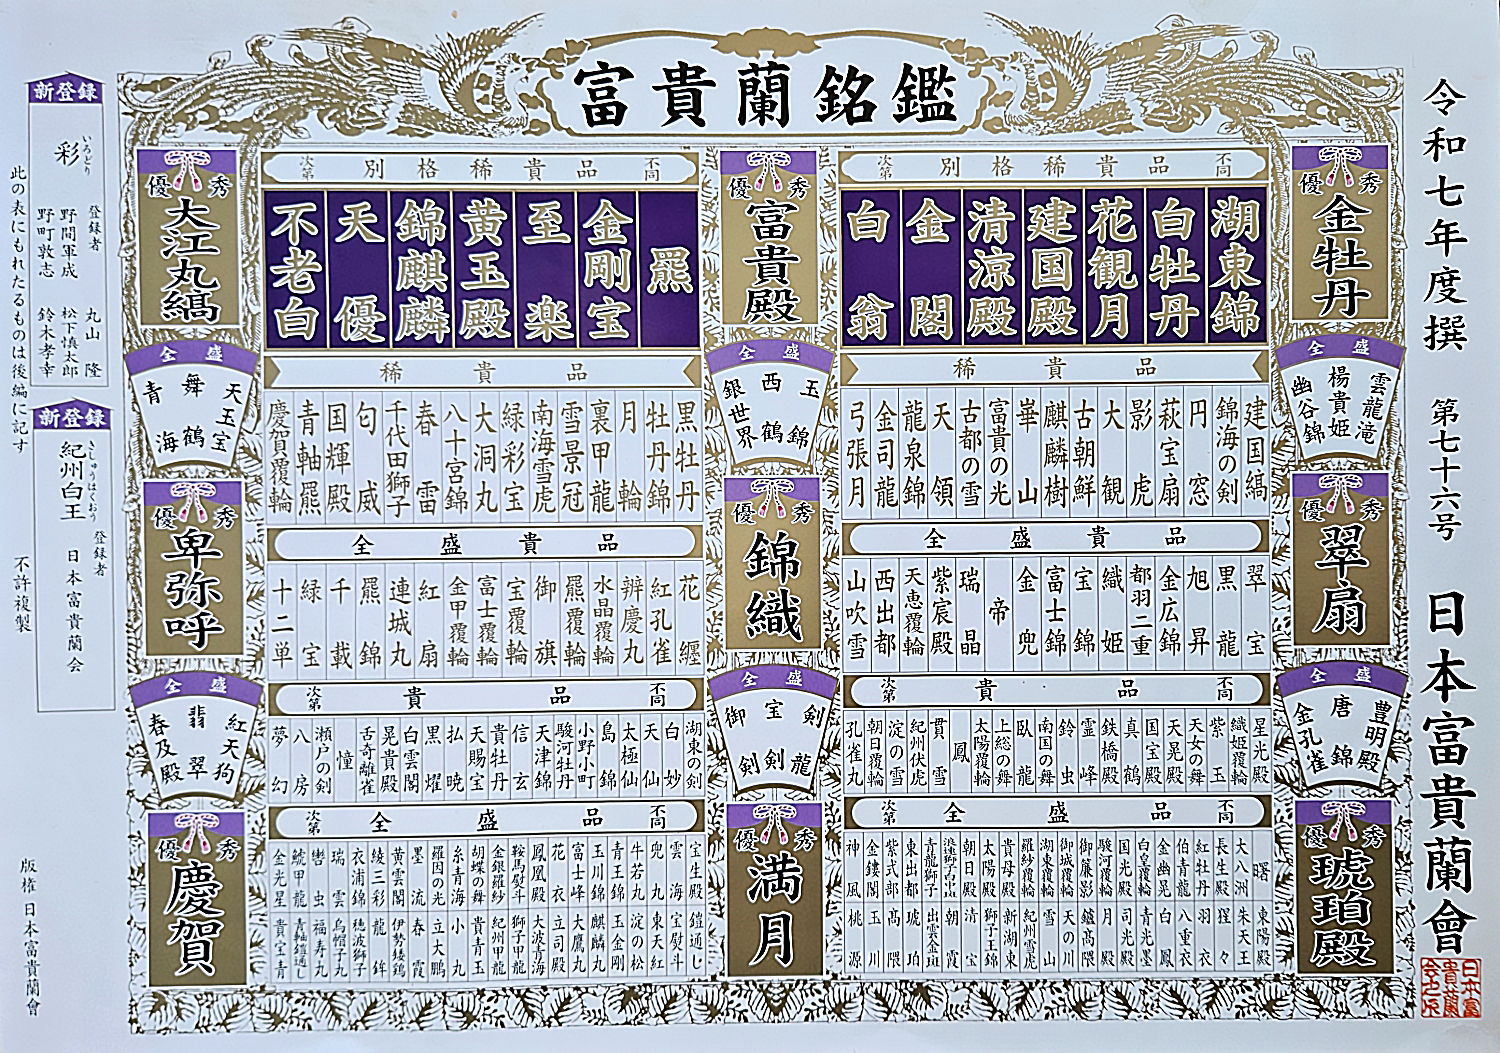 富貴蘭銘鑑
令和七年度撰 第七十六号 日本富貴蘭會
優秀
金牡丹
全盛
雲龍滝
楊貴姫
幽谷錦
優秀
翠扇
全盛
豊明殿
唐錦
金孔雀
優秀
琥珀殿
次第 別格稀貴品 不同
湖東錦
白牡丹
花観月
建国殿
清涼殿
金閣
白翁
稀貴品
建国縞
錦海の剣
円窓
萩宝扇
影虎
大観
古朝鮮
麒麟樹
崋山
富貴の光
古都の雪
天領
龍泉錦
金司龍
弓張月
全盛貴品
翠宝
黒龍
旭昇
金広錦
都羽二重
織姫
宝錦
富士錦
金兜
帝
瑞晶
紫宸殿
天恵覆輪
西出都
山吹雪
次第 貴品 不同
星光殿
織姫覆輪
紫玉
天女の舞
天晃殿
国宝殿
真鶴
鉄橋殿
霊峰
鈴虫
南国の舞
臥龍
上総の舞
太陽覆輪
鳳
貫雪
紀州伏虎
淀の雪
朝日覆輪
孔雀丸
次第 全盛品 不同
曙 東陽殿
大八洲 朱天王
長生殿 猩々
紅牡丹 羽衣
伯青龍 八重衣
金幽晃 白鳳
白皇覆輪 青光墨
国光殿 司光殿
駿河覆輪 月殿
御簾影 鑓髙隈
御城覆輪 天の川
湖東覆輪 雪山
羅紗覆輪 紀州雪虎
貴母殿 新湖東
太陽殿 獅子王錦
朝日殿 清宝
朝霞
青龍獅子 出雲金斑
東出都 琥珀
紫式部 髙隈
金鏤閣 玉川
神風 桃源
優秀
富貴殿
全盛
玉錦
西鶴
銀世界
優秀
錦織
全盛
剣龍
宝剣
御剣
優秀
満月
次第 別格稀貴品 不同
羆
金剛宝
至楽
黄玉殿
錦麒麟
天優
不老白
稀貴品
黒牡丹
牡丹錦
月輪
裏甲龍
雪景冠
南海雪虎
緑彩宝
大洞丸
八十宮錦
春雷
千代田獅子
匂威
国輝殿
青軸羆
慶賀覆輪
全盛貴品
花纏
紅孔雀
辨慶丸
水晶覆輪
羆覆輪
御旗
宝覆輪
富士覆輪
金甲覆輪
紅扇
連城丸
羆錦
千載
緑宝
十二単
次第 貴品 不同
湖東の剣
白妙
天仙
太極仙
島錦
小野小町
駿河牡丹
天津錦
信玄
貴牡丹
天賜宝
払暁
黒燿
白雲閣
晃貴殿
舌奇離雀
憧
瀬戸の剣
八房
夢幻
次第 全盛品 不同
宝生殿 鎧通し
雲海 宝熨斗
兜丸 東天紅
牛若丸 淀の松
青王丸 玉金剛
玉川錦 麒麟丸
富士峰 大鷹丸
花衣 立司殿
鳳凰殿 大波青海
鞍馬熨斗 獅子甲龍
金銀羅紗 紀州甲龍
胡蝶の舞 貴青玉
糸青海 小丸
羅因の光 立大鵬
墨流 春霞
黄雲閣 伊勢矮鶏
綾三彩 龍鉾
衣浦錦 穂波獅子
瑞雲 烏帽子丸
轡虫 福寿丸
鯱甲龍 青軸鎧通し
金光星 貴宝青
優秀
大江丸縞
全盛
天玉宝
舞鶴
青海
優秀
卑弥呼
全盛
紅天狗
翡翠
春及殿
優秀
慶賀
新登録
彩 いろどり
登録者
丸山隆
野間軍成 松下慎太郎
野町敦志 鈴木孝幸
新登録
紀州白王 きしゅうはくおう
登録者
日本富貴蘭会
此の表にもれたるものは後編に記す
不許複製
版権 日本富貴蘭會